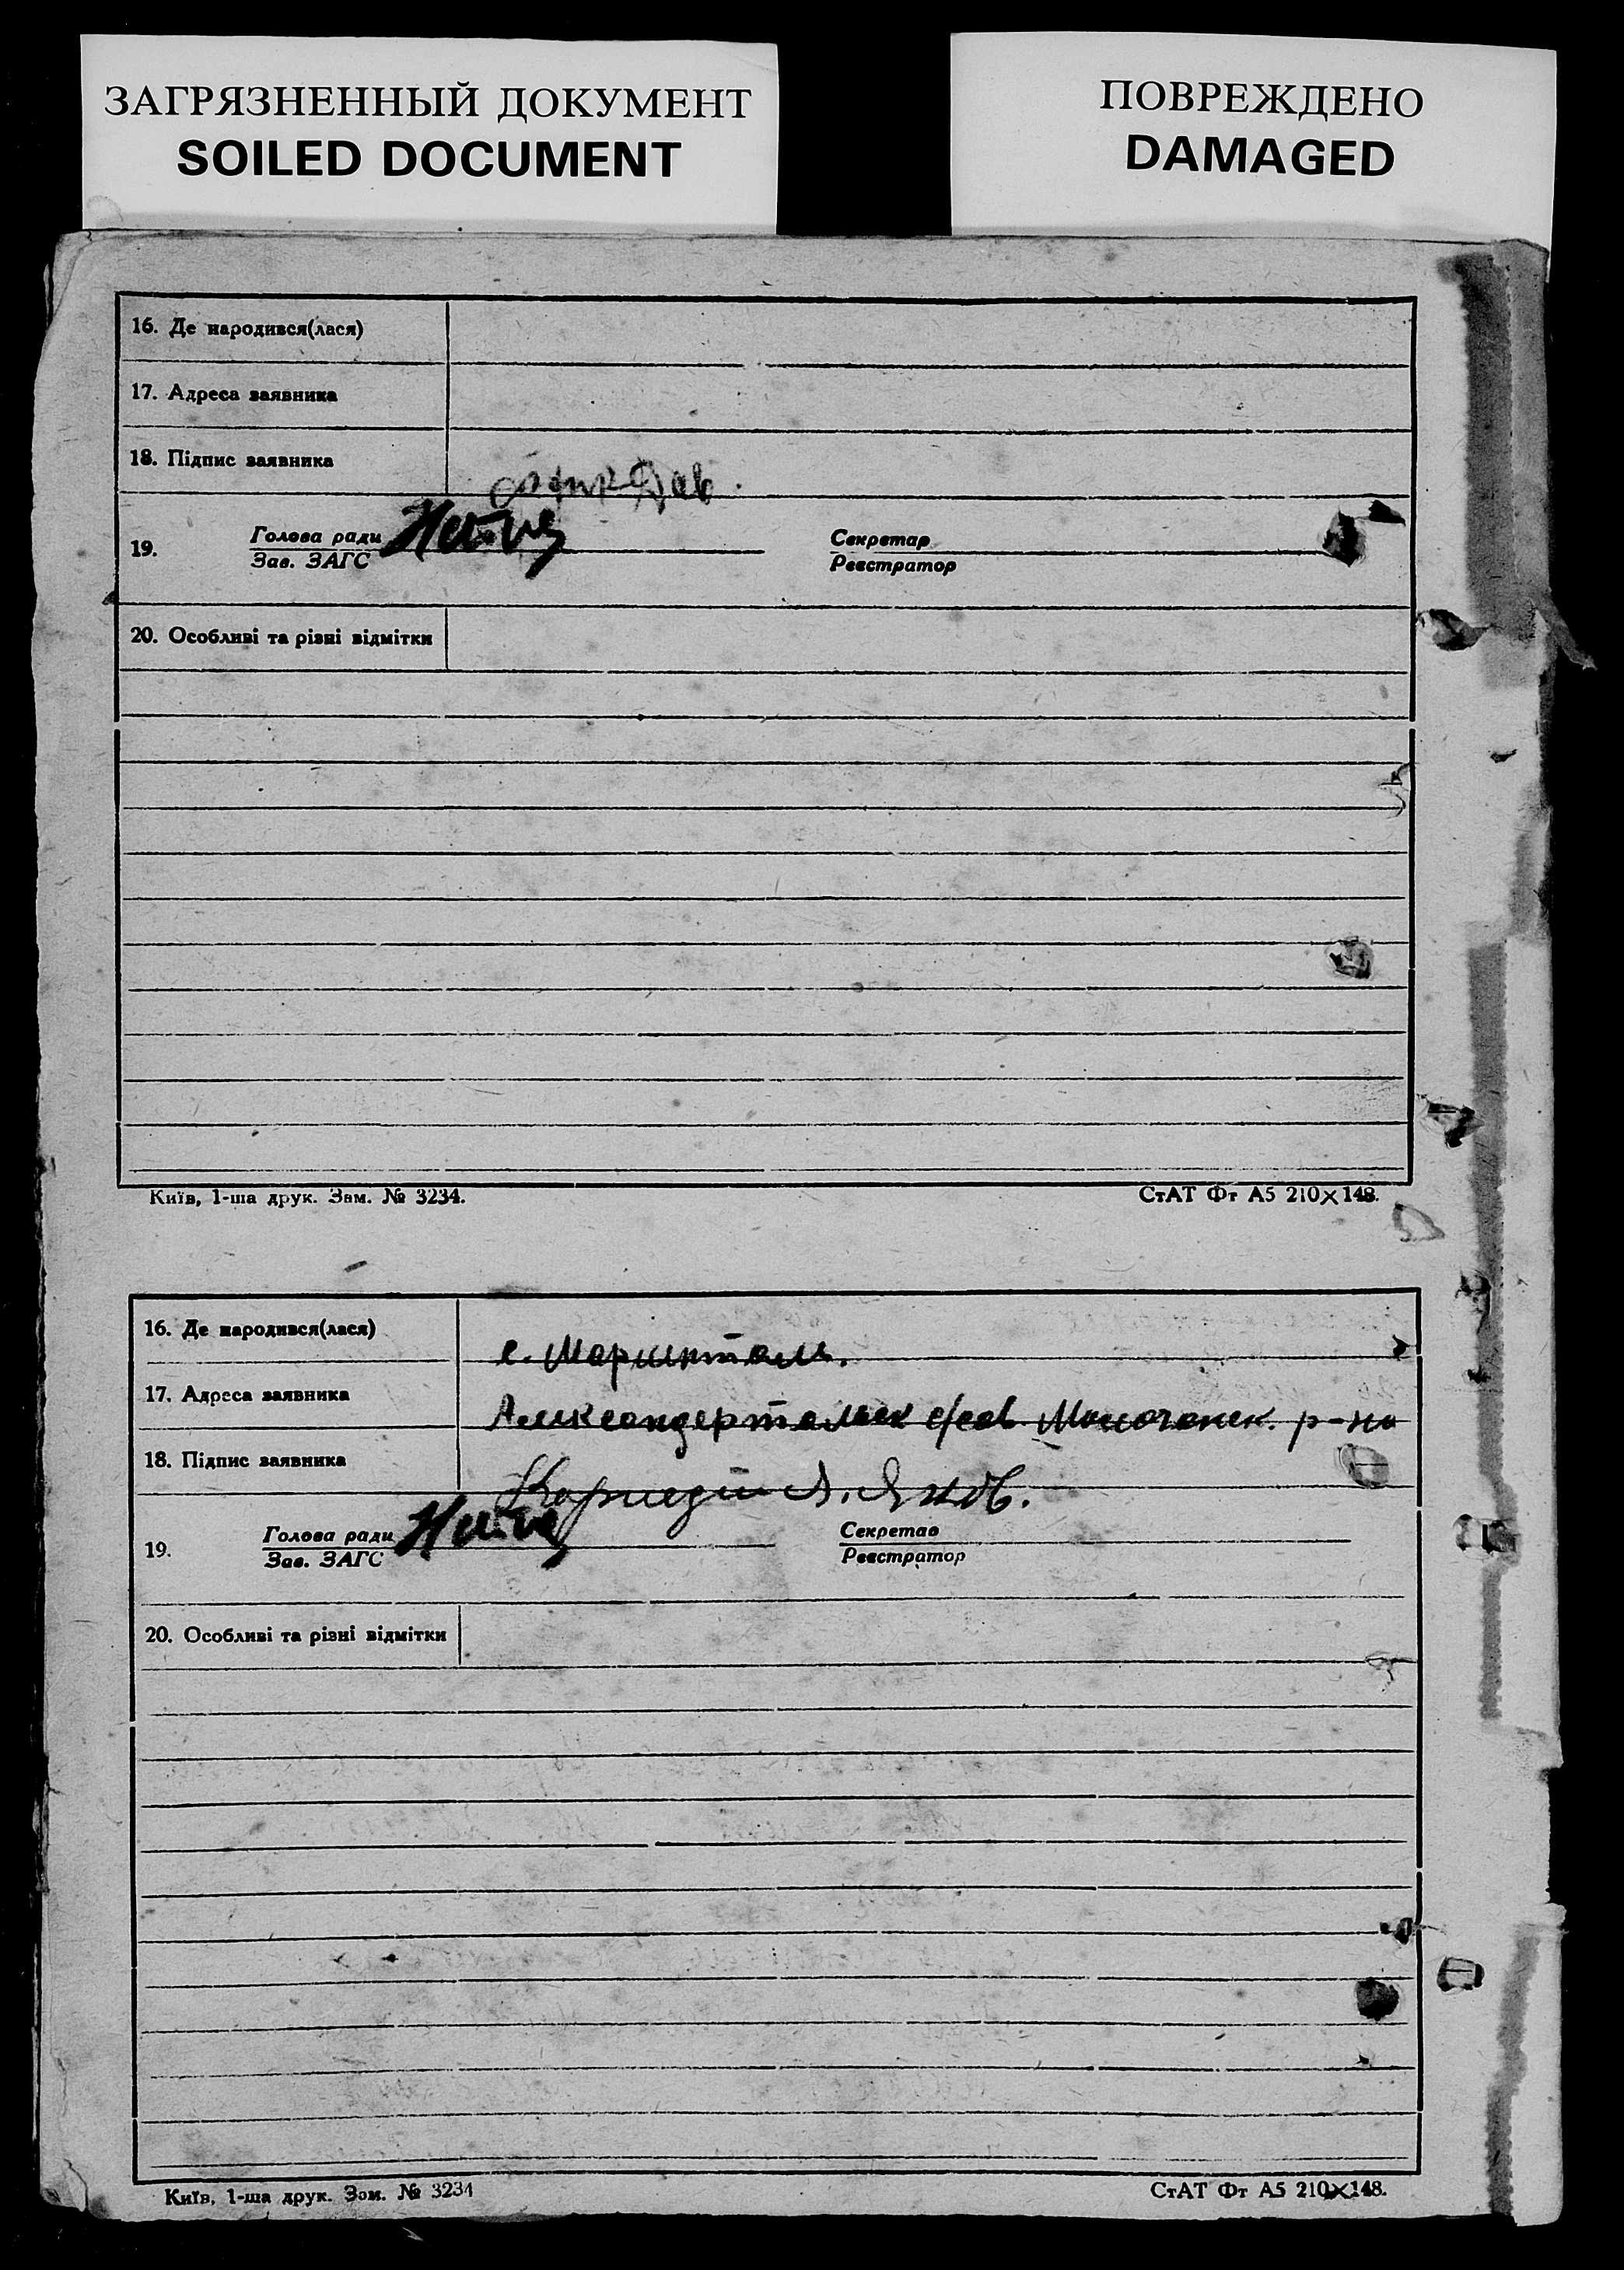 ЗАГРЯЗНЕННЫЙ ДОКУМЕНТ
SOILED DOCUMENT
ПОВРЕЖДЕНО
DAMAGED
16. Де народився(лася)
17. Адреса заявника
18. Підпис заявника
19. Голова ради Секретар
Зав. ЗАГС Реєстратор
20. Особливі та різні відмітки
Київ, 1-ша друк. Зам. № 3234. СтАТ Фт А5 210×148.
16. Де народився(лася) с. Мариенталь.
17. Адреса заявника Александертальск с/сов. Молочанск. р-на
18. Підпис заявника
19. Голова ради Секретар
Зав. ЗАГС Реєстратор
20. Особливі та різні відмітки
Київ, 1-ша друк. Зам. № 3234 СтАТ Фт А5 210×148.